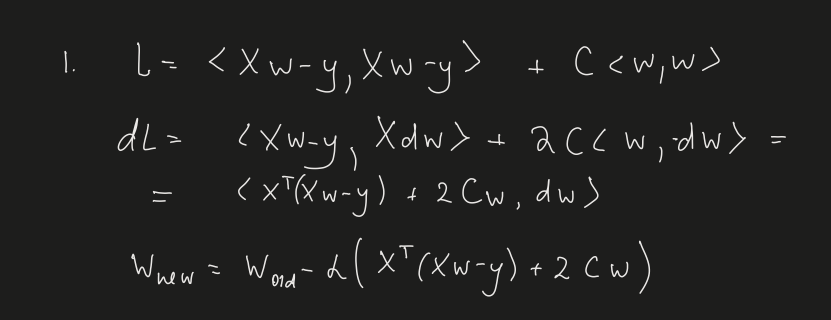 1. L = <Xw-y, Xw-y> + C<w,w>
dL = <Xw-y, Xdw> + 2C<w, dw> =
= <X^T(Xw-y) + 2Cw, dw>
W_new = W_old - α(X^T(Xw-y) + 2Cw)